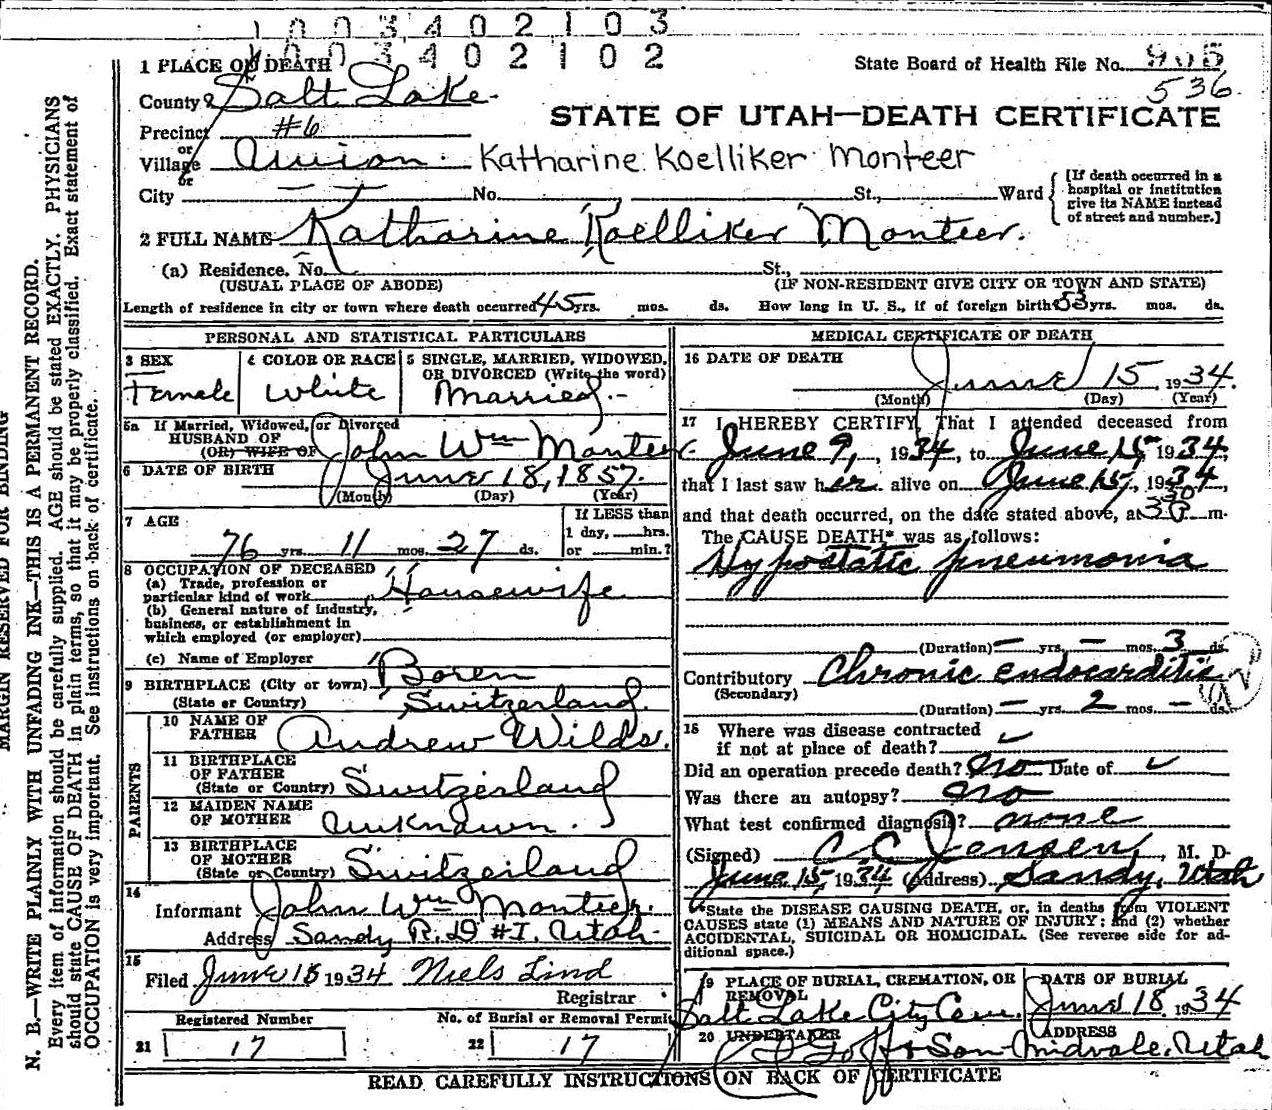 1 0 0 3 4 0 2 1 0 3
1 0 0 3 4 0 2 1 0 2
1 PLACE OF DEATH
State Board of Health File No.
536
County Salt Lake
STATE OF UTAH—DEATH CERTIFICATE
Precinct #6
or
Village Union Katharine Koelliker Monteer
or
City No. St., Ward
[If death occurred in a
hospital or institution
give its NAME instead
of street and number.]
2 FULL NAME Katharine Koelliker Monteer.
(a) Residence. No. St.,
(USUAL PLACE OF ABODE) (IF NON-RESIDENT GIVE CITY OR TOWN AND STATE)
Length of residence in city or town where death occurred 45 yrs. mos. ds. How long in U. S., if of foreign birth 53 yrs. mos. ds.
PERSONAL AND STATISTICAL PARTICULARS
3 SEX
Female
4 COLOR OR RACE
White
5 SINGLE, MARRIED, WIDOWED,
OR DIVORCED (Write the word)
Married.
5a If Married, Widowed, or Divorced
HUSBAND OF
(OR) WIFE OF John Wm Monteer
6 DATE OF BIRTH June 18, 1857.
(Month) (Day) (Year)
7 AGE
76 yrs. 11 mos. 27 ds.
If LESS than
1 day, hrs.
or min.?
8 OCCUPATION OF DECEASED
(a) Trade, profession or
particular kind of work Housewife
(b) General nature of industry,
business, or establishment in
which employed (or employer)
(c) Name of Employer
9 BIRTHPLACE (City or town) Boren
(State or Country) Switzerland.
PARENTS
10 NAME OF
FATHER Andrew Wilds.
11 BIRTHPLACE
OF FATHER
(State or Country) Switzerland
12 MAIDEN NAME
OF MOTHER Unknown.
13 BIRTHPLACE
OF MOTHER
(State or Country) Switzerland
14
Informant John Wm Monteer.
Address Sandy R.D #1. Utah.
15
Filed June 18 1934 Niels Lind
Registrar
Registered Number
21 17
No. of Burial or Removal Permit
22 17
MEDICAL CERTIFICATE OF DEATH
16 DATE OF DEATH
June 15 1934.
(Month) (Day) (Year)
17 I HEREBY CERTIFY, That I attended deceased from
June 9, 1934, to June 15, 1934,
that I last saw her alive on June 15, 1934,
and that death occurred, on the date stated above, at 3 30 P m.
The CAUSE DEATH* was as follows:
Hypostatic pneumonia
(Duration) — yrs. — mos. 3 ds.
Contributory Chronic endocarditis
(Secondary)
(Duration) — yrs. 2 mos. — ds.
18 Where was disease contracted
if not at place of death?
Did an operation precede death? No Date of
Was there an autopsy? no
What test confirmed diagnosis? none
(Signed) C C Jensen, M. D.
June 15, 1934 (Address) Sandy, Utah
*State the DISEASE CAUSING DEATH, or, in deaths from VIOLENT
CAUSES state (1) MEANS AND NATURE OF INJURY; and (2) whether
ACCIDENTAL, SUICIDAL OR HOMICIDAL. (See reverse side for ad-
ditional space.)
19 PLACE OF BURIAL, CREMATION, OR
REMOVAL
Salt Lake City Cem.
DATE OF BURIAL
June 18. 1934
20 UNDERTAKER
Goff & Son
ADDRESS
Midvale, Utah
READ CAREFULLY INSTRUCTIONS ON BACK OF CERTIFICATE
MARGIN RESERVED FOR BINDING
N. B.—WRITE PLAINLY WITH UNFADING INK—THIS IS A PERMANENT RECORD.
Every item of information should be carefully supplied. AGE should be stated EXACTLY. PHYSICIANS
should state CAUSE OF DEATH in plain terms, so that it may be properly classified. Exact statement of
OCCUPATION is very important. See instructions on back of certificate.